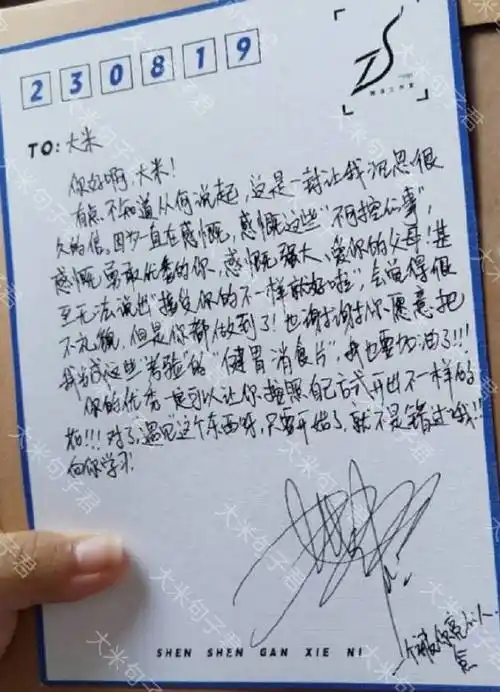 230819
TO: 大米
你好啊，大米！
有点不知道从何说起，这是一封让我沉思很
久的信。因为一直在感慨，感慨这些“不可控的事”，
感慨勇敢优秀的你、感慨强大、爱你的父母！甚
至无法说出“接受你的不一样就好啦”，会觉得很
不礼貌，但是你都做到了！也谢谢你愿意把
我当成这些“考验”的“健胃消食片”，我也要加油了!!!
你的优秀一定可以让你按照自己方式开出不一样的
花!!! 对了，遇见这个东西呀，只要开始了，就不是错过哦!!
向你学习!
SHEN SHEN GAN XIE NI
大米句子君